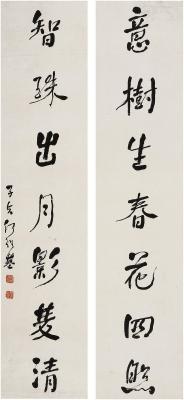 意樹生春花四照
智珠出月影雙清
子貞何紹基